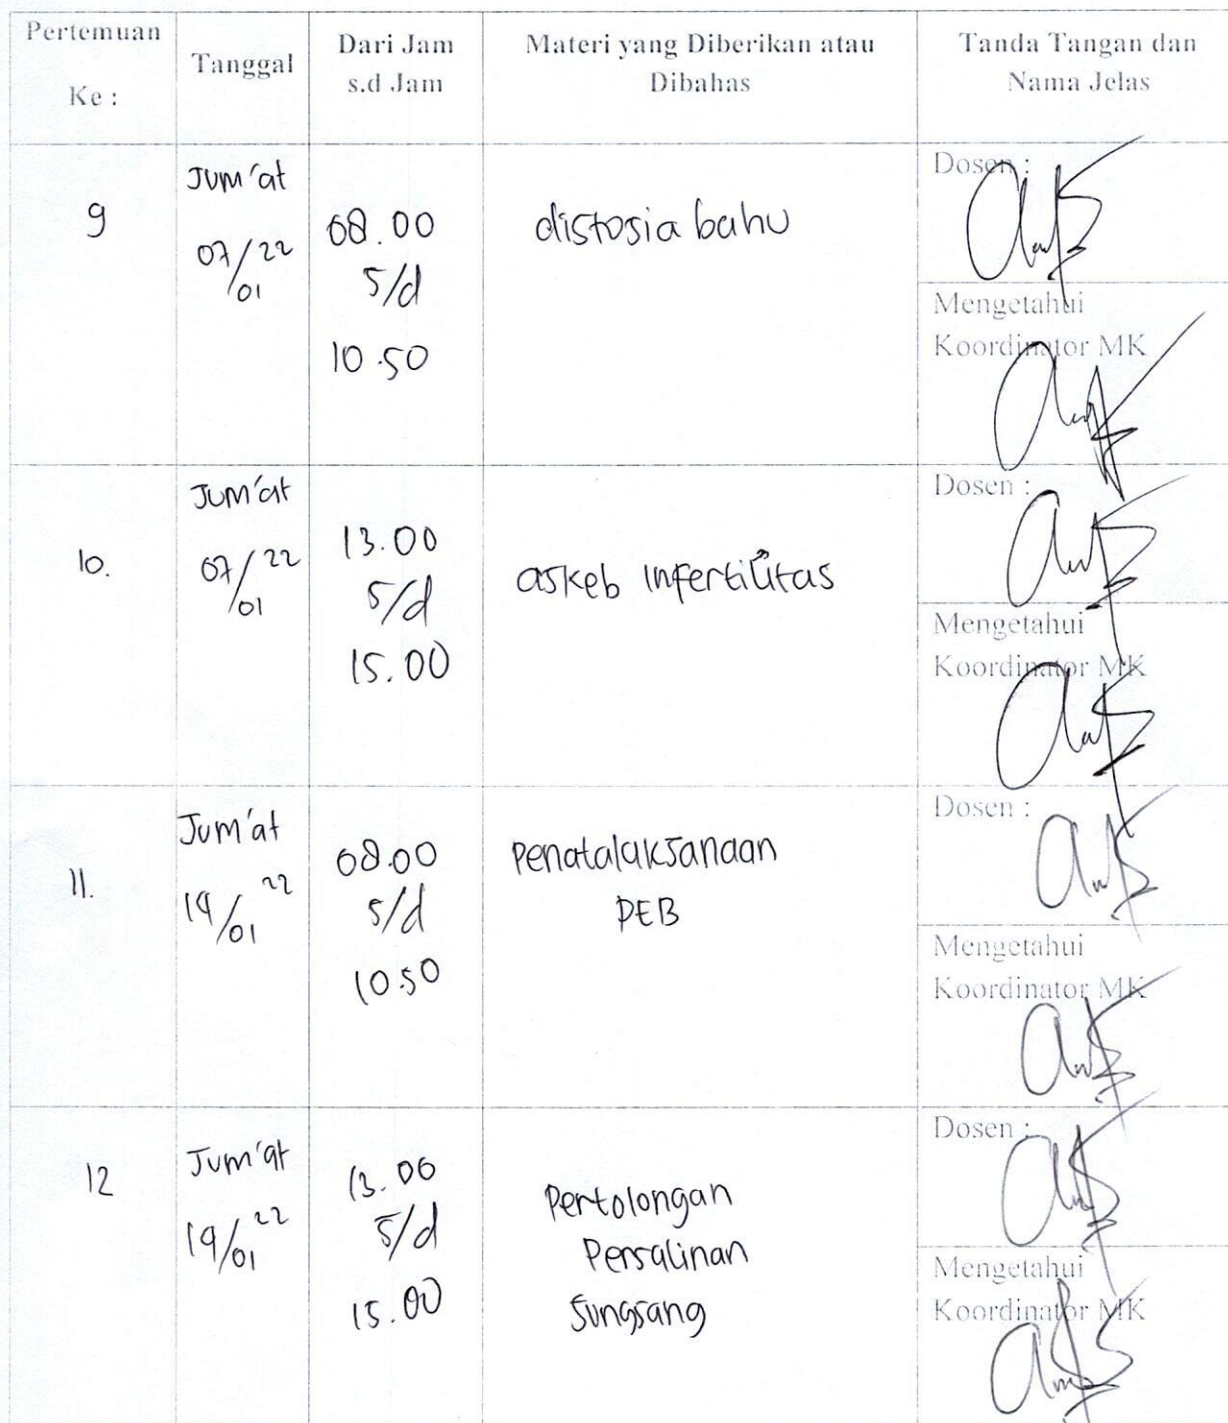 Pertemuan
Ke :
Tanggal
Dari Jam
s.d Jam
Materi yang Diberikan atau
Dibahas
Tanda Tangan dan
Nama Jelas
9
Jum'at
07/01 22
08.00
s/d
10.50
distosia bahu
Dosen :
Mengetahui
Koordinator MK
10.
Jum'at
07/01 22
13.00
s/d
15.00
askeb Infertilitas
Dosen :
Mengetahui
Koordinator MK
11.
Jum'at
14/01 22
08.00
s/d
10.50
Penatalaksanaan
PEB
Dosen :
Mengetahui
Koordinator MK
12
Jum'at
14/01 22
13.00
s/d
15.00
Pertolongan
Persalinan
Sungsang
Dosen :
Mengetahui
Koordinator MK